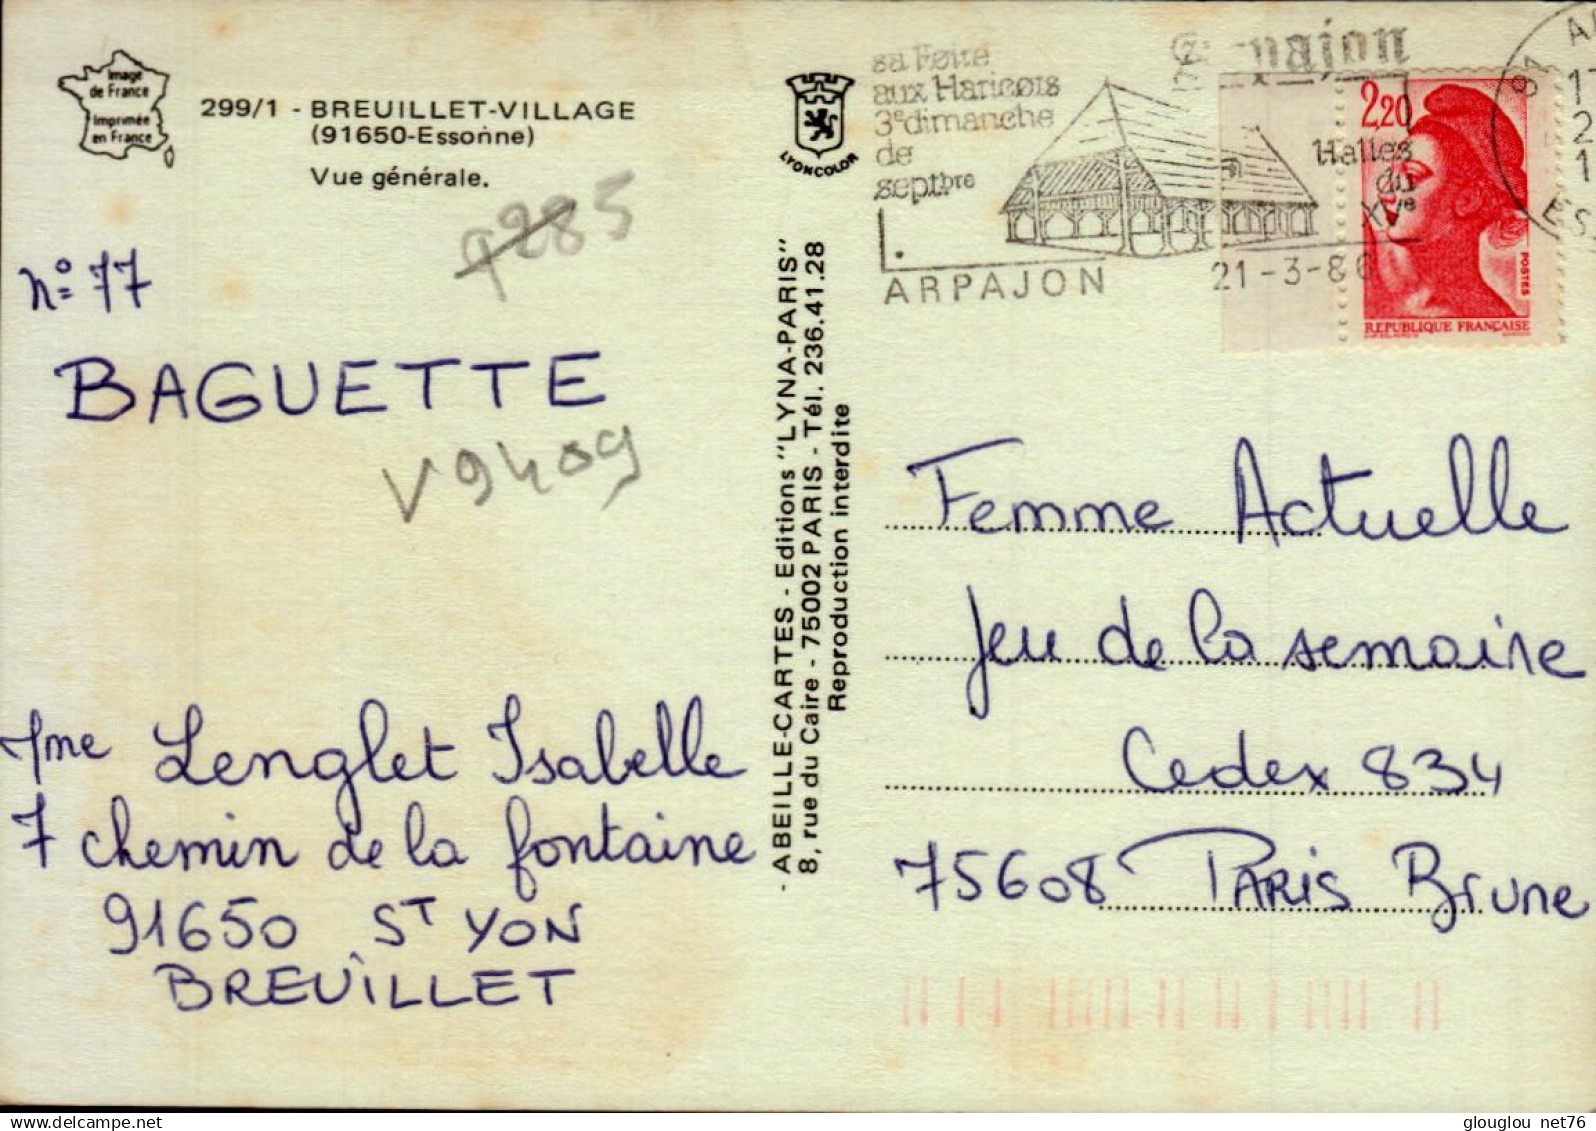 Image
de France
Imprimée
en France
299/1 - BREUILLET-VILLAGE
(91650-Essonne)
Vue générale.
LYONCOLOR
sa Foire
aux Haricots
3e dimanche
de
septbre
ARPAJON
Halles
du
XVe
21-3-86
2,20
POSTES
REPUBLIQUE FRANÇAISE
n° 77
9285
BAGUETTE
V9409
Mme Lenglet Isabelle
7 chemin de la fontaine
91650 ST YON
BREUILLET
ABEILLE-CARTES - Editions "LYNA-PARIS"
8, rue du Caire - 75002 PARIS - Tél. 236.41.28
Reproduction interdite
Femme Actuelle
Jeu de la semaine
Cedex 834
75608 PARIS Brune
glouglou net76